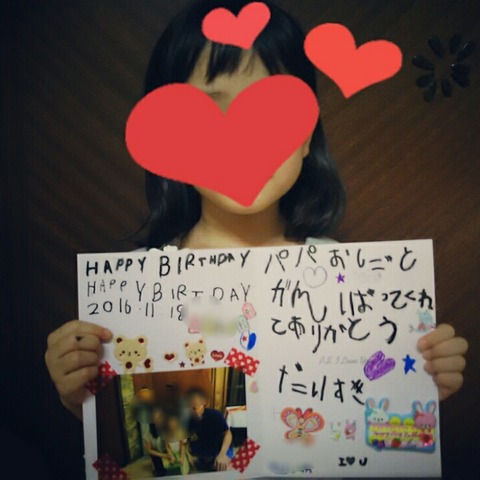 HAPPY BIRTHDAY
HAPPY BIRTDAY
2016.11.18
パパ おしごと
がんばってくれ
てありがとう
P.S. I Love You
だいすき
I ♥ U